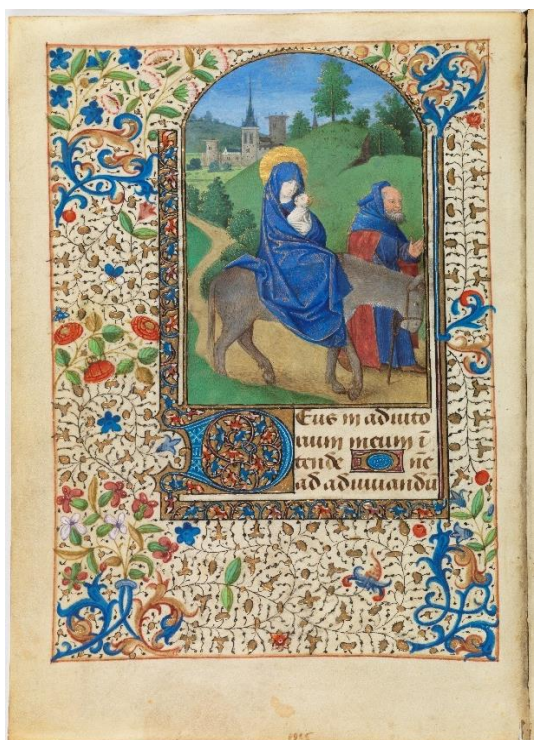 Deus in adiuto
rium meum i
tende ne
ad adiuuandu